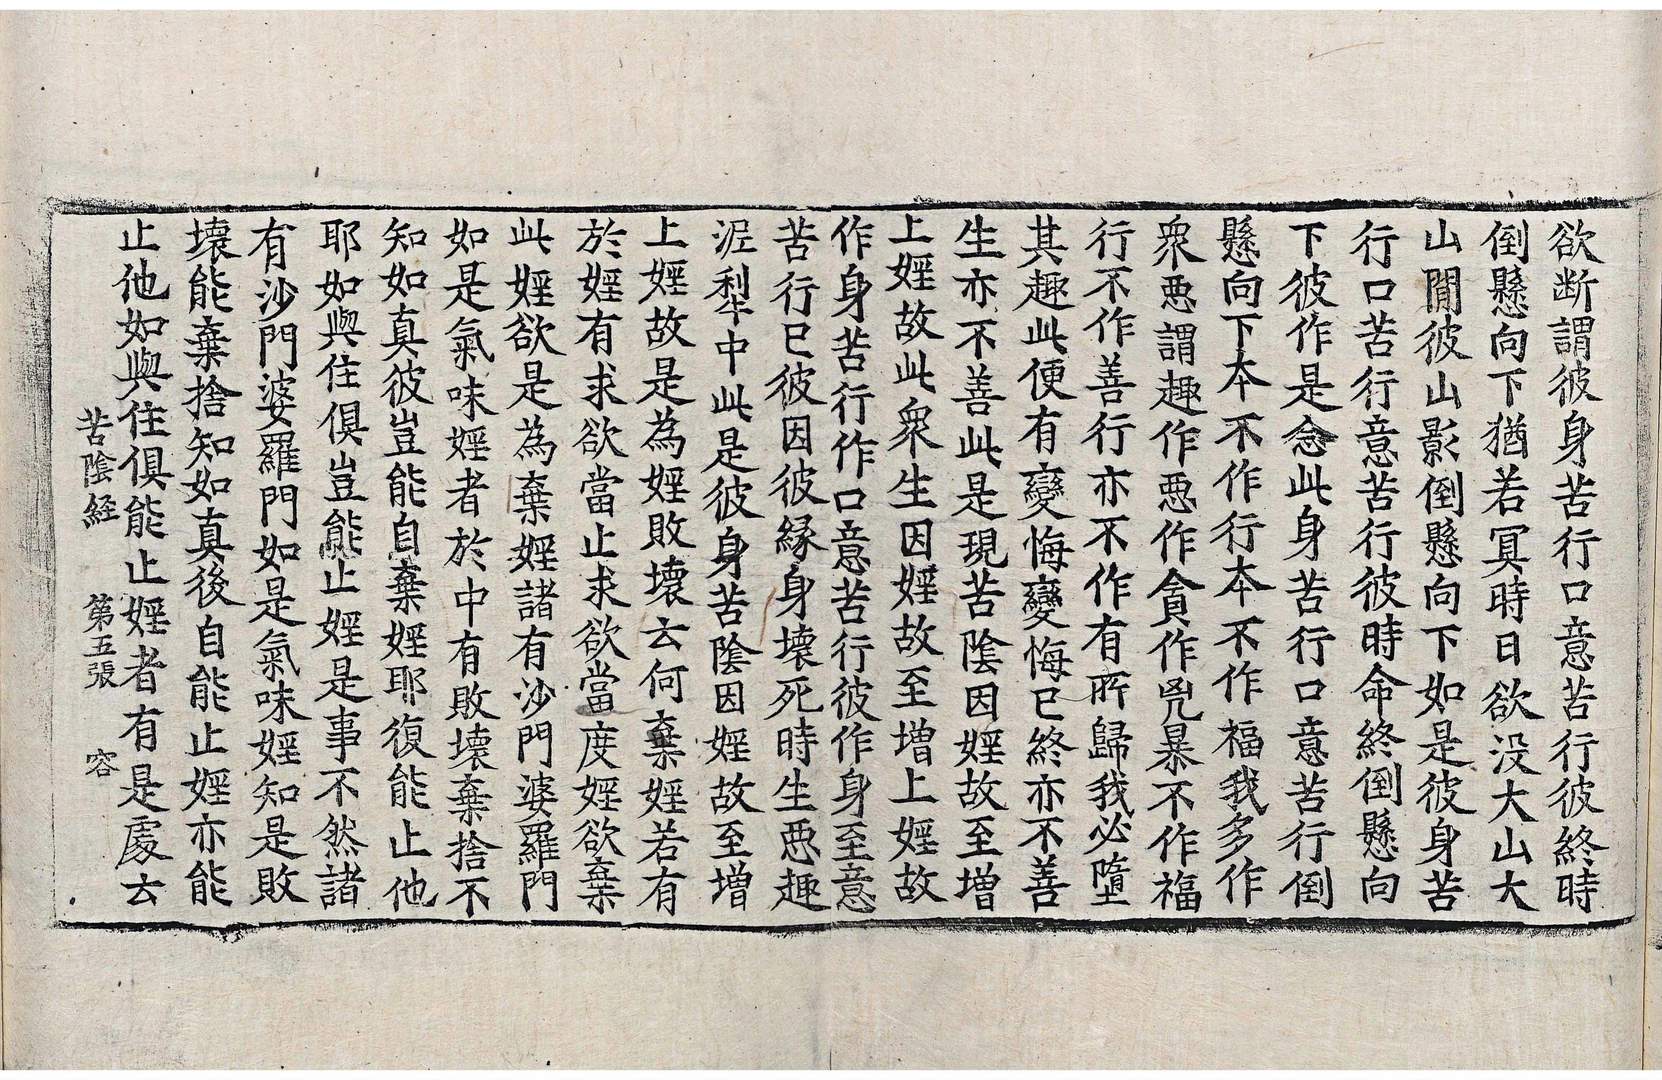 欲断謂彼身苦行口意苦行彼終時
倒懸向下猶若冥時日欲没大山大
山閒彼山影倒懸向下如是彼身苦
行口苦行意苦行彼時命終倒懸向
下彼作是念此身苦行口意苦行倒
懸向下本不作行本不作福我多作
衆惡謂趣作惡作貪作兇暴不作福
行不作善行亦不作有所歸我必墮
其趣此便有變悔變悔已終亦不善
生亦不善此是現苦陰因婬故至增
上婬故此衆生因婬故至增上婬故
作身苦行作口意苦行彼作身至意
苦行已彼因彼縁身壞死時生惡趣
泥犁中此是彼身苦陰因婬故至增
上婬故是為婬敗壞云何棄婬若有
於婬有求欲當止求欲當度婬欲棄
此婬欲是為棄婬諸有沙門婆羅門
如是氣味婬者於中有敗壞棄捨不
知如真彼豈能自棄婬耶復能止他
耶如與住俱豈能止婬是事不然諸
有沙門婆羅門如是氣味婬知是敗
壞能棄捨知如真後自能止婬亦能
止他如與住俱能止婬者有是處云
苦陰経 第五張 容